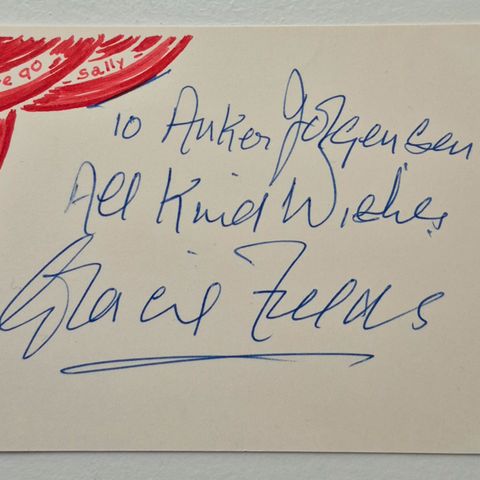 e go
Sally
To Anker Jörgensen
All Kind Wishes
Gracie Fields